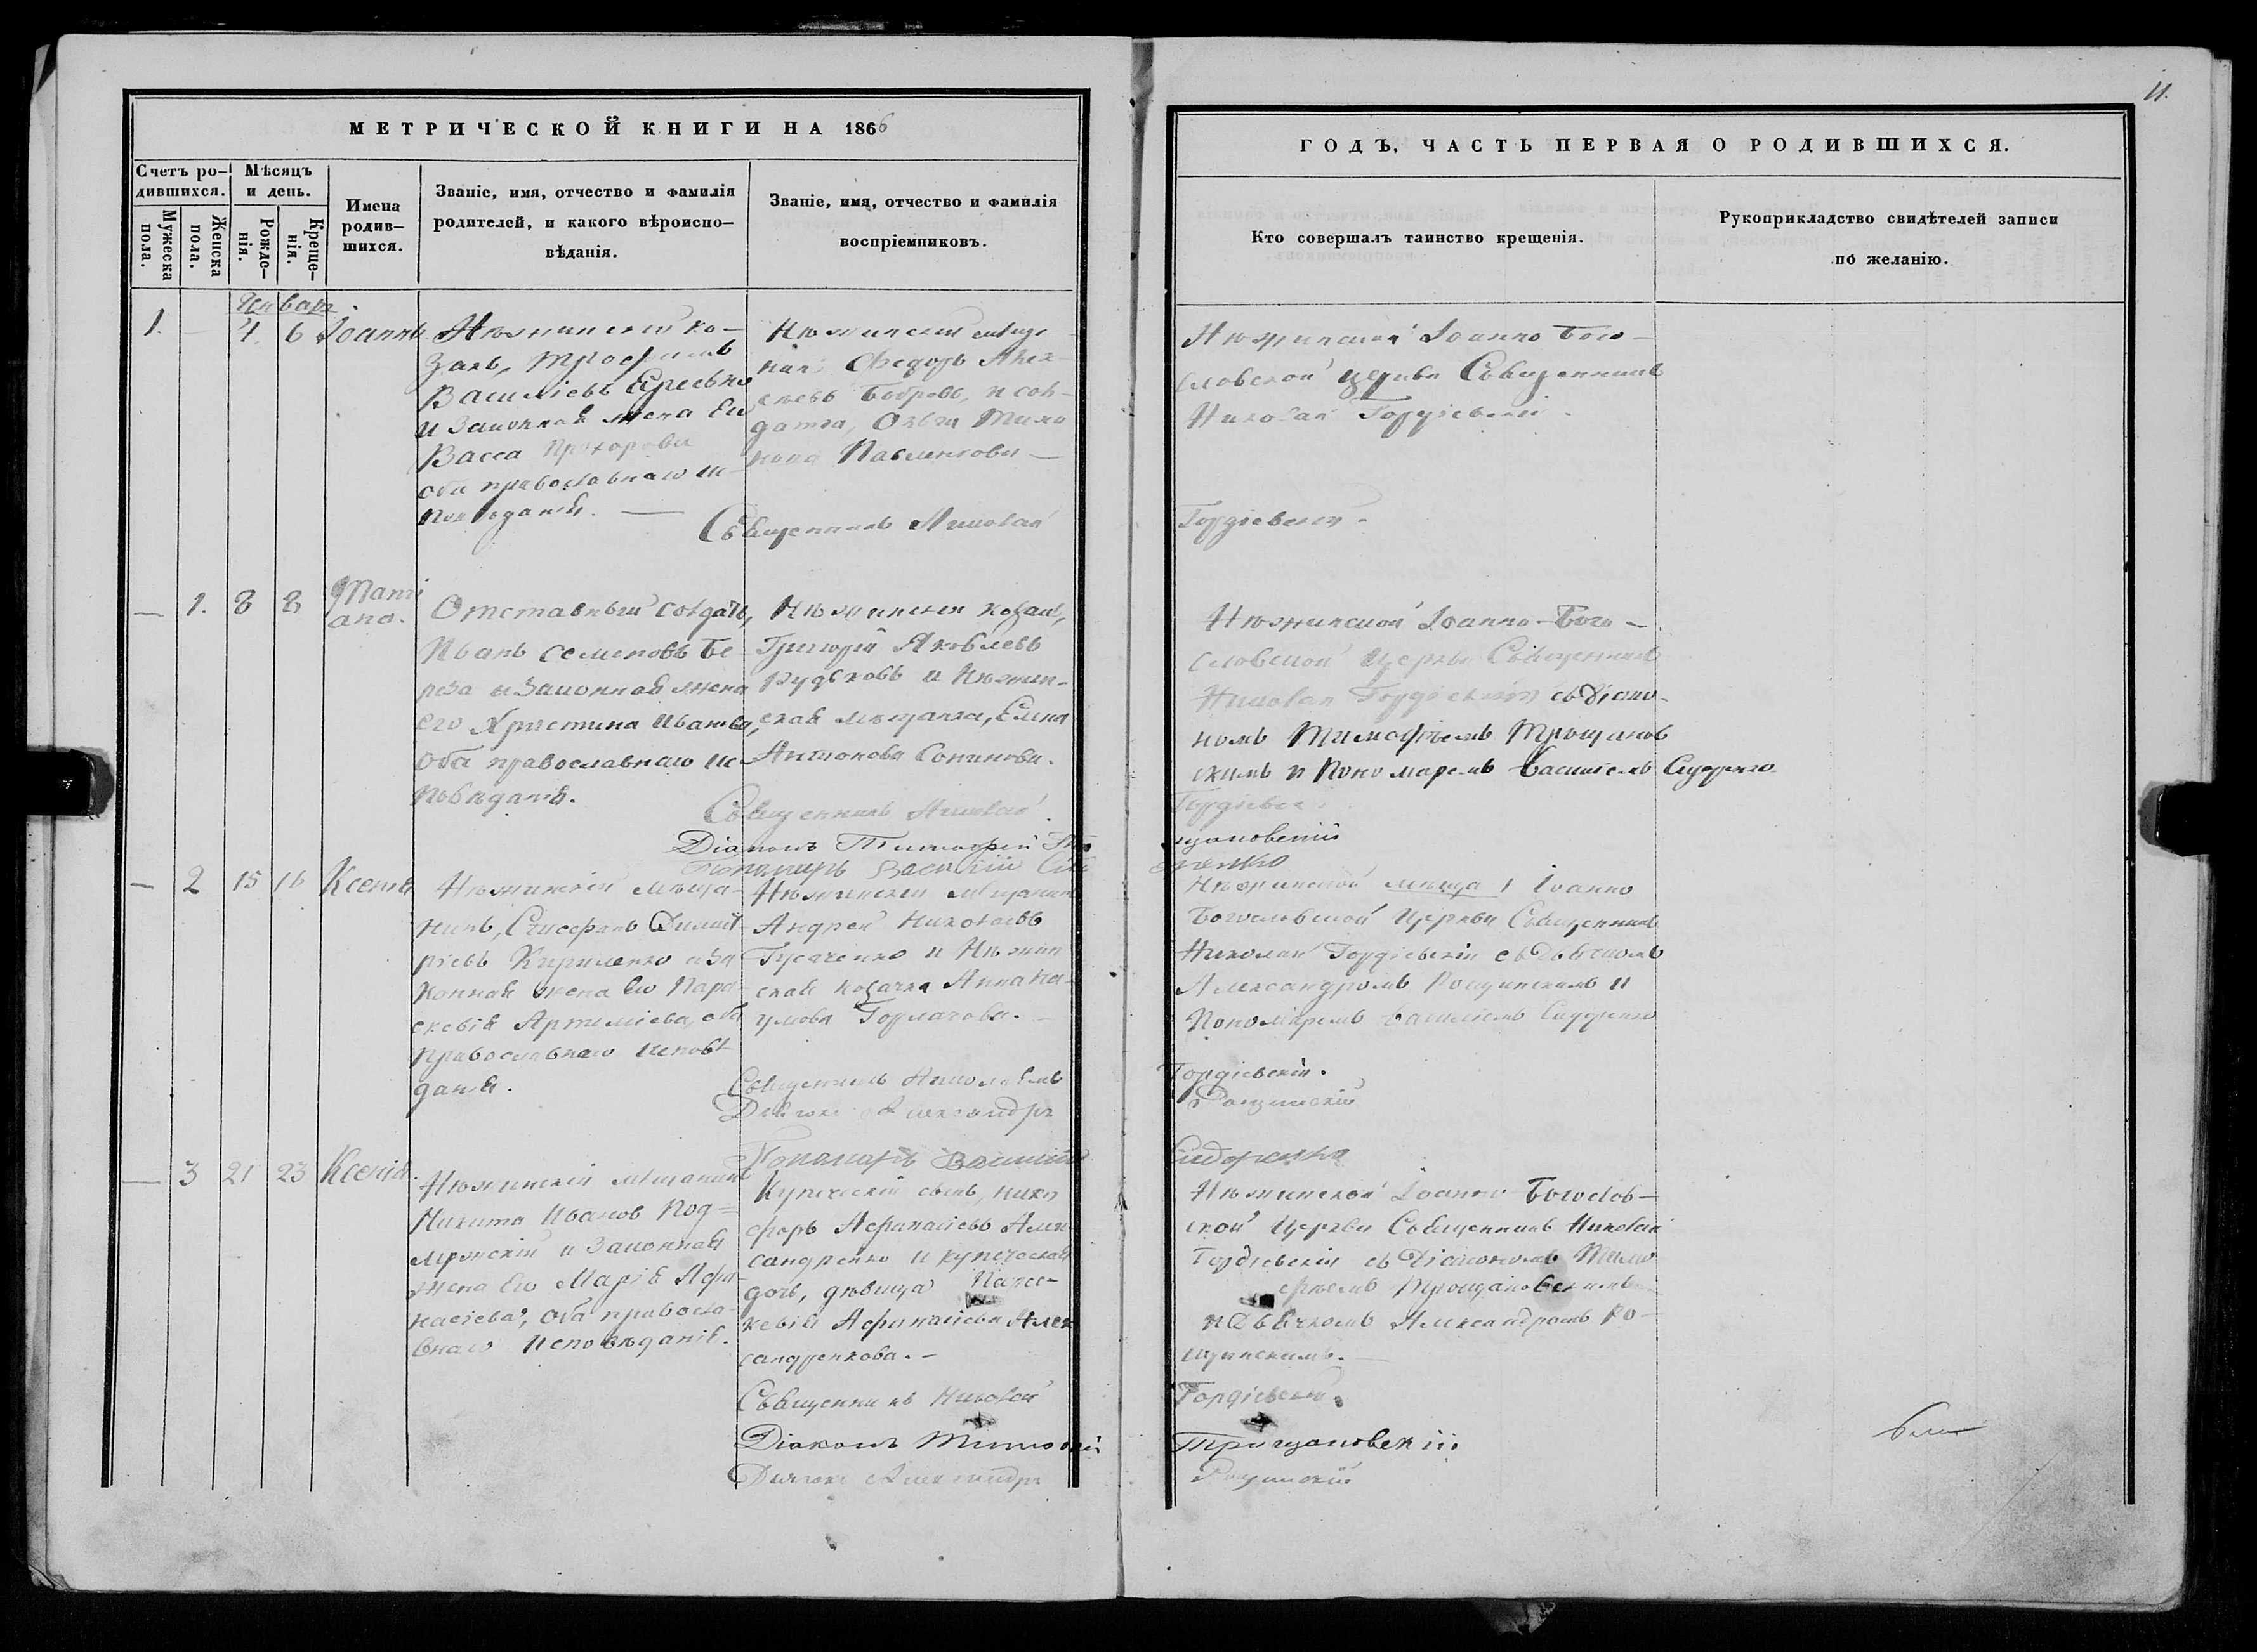 11.
МЕТРИЧЕСКОЙ КНИГИ НА 1866
Счетъ ро-
дившихся.
Мѣсяцъ
и день.
Мужеска
пола.
Женска
пола.
Рожде-
нія.
Креще-
нія.
Имена
родив-
шихся.
Званіе, имя, отчество и фамилія
родителей, и какого вѣроиспо-
вѣданія.
Званіе, имя, отчество и фамилія
воспріемниковъ.
ГОДЪ, ЧАСТЬ ПЕРВАЯ О РОДИВШИХСЯ.
Кто совершалъ таинство крещенія.
Рукоприкладство свидѣтелей записи
по желанію.
Январь
1. — 4. 6 Іоаннъ
Нѣжинскій ко-
закъ, Трофимъ
Василіевъ
и законная жена его
Васса Прохорова
оба православнаго ис-
повѣданія. —
Нѣжинскій
Федоръ Алек-
сѣевъ Бобровъ, и сол-
датка, Ольга Тихо
нова Павленкова —
Священникъ Николай
Нѣжинской Іоанно Бого-
словской церкви Священникъ
Николай Гордіевскій.
Гордіевскій.
— 1. 8 8 Таті
ана.
Отставный солдатъ,
Иванъ Семеновъ Бе
реза и законная жена
его Христина Иванова,
оба православнаго ис-
повѣданія.
Нѣжинскій козакъ,
Григорій Яковлевъ
Рудьковъ и Нѣжин-
ская мѣщанка, Елена
Антонова Сопинова.
Священникъ Николай
Діаконъ Тимофей
Пономарь Василій
Нѣжинской Іоанно-Бого-
словской церкви Священникъ
Николай Гордіевскій съ Діако-
номъ Тимофѣемъ Трощанов
скимъ и Пономаремъ Василіемъ
Гордіевск
щановскій
ренко
— 2 15 16 Ксенія
Нѣжинскій мѣща-
нинъ, Стефанъ Димит-
ріевъ Кириленко и за
конная жена его Пара-
скевія Артиміева, оба
православнаго исповѣ
данія.
Нѣжинскій мѣщанинъ
Андрей Николаевъ
Гусаченко и Нѣжин
ская козачка Анна На-
умова Горлачова. —
Священникъ Николай
Дьячокъ Александръ
Пономарь Василій
Нѣжинской мѣща Іоанно
Богословской церкви Священникъ
Николай Гордіевскій съ Дьячкомъ
Александромъ Рощинскимъ и
Пономаремъ Василіемъ
Гордіевскій.
Рощинскій
Сидоренко
— 3 21 23 Ксенія.
Нѣжинскій мѣщанинъ
Никита Иванов Под-
и законная
жена его Марія Афа-
насіева, оба правосла-
внаго исповѣданія.
Купеческій сынъ, Ники
форъ Афанасіевъ Алек-
сандренко и купеческая
дочь, дѣвица Парас-
кевія Афанасіева Алек
сандренкова. —
Священникъ Николай
Діаконъ Тимофей
Дьячокъ Александръ
Нѣжинской Іоанно Богослов-
ской церкви Священникъ Николай
Гордіевскій съ Діакономъ Тимо
фѣемъ Трощановскимъ
и Дьячкомъ Александромъ Ро-
щинскимъ. —
Гордіевскій.
Трощановскій
Рощинскій